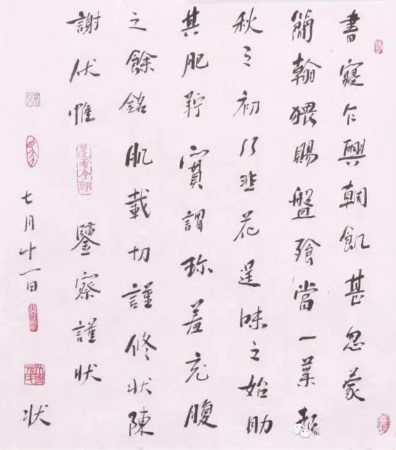 書寝乍興朝飢甚忽蒙
簡翰猥賜盤飧當一葉報
秋之初乃韭花逞味之始助
其肥羜實謂珍羞充腹
之餘銘肌載切謹修狀陳
謝伏惟鑒察謹狀
七月十一日狀